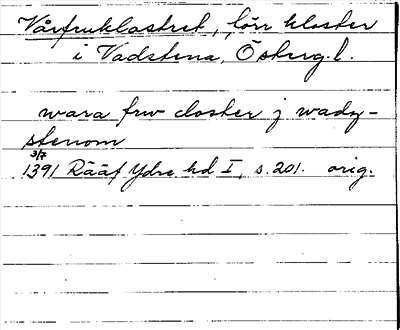 Vårfruklostret, förr kloster
i Vadstena, Österg. l.
wara frw closter j wadz-
stenom
3/7
1391 Rääf Ydre hd I, s. 201. orig.